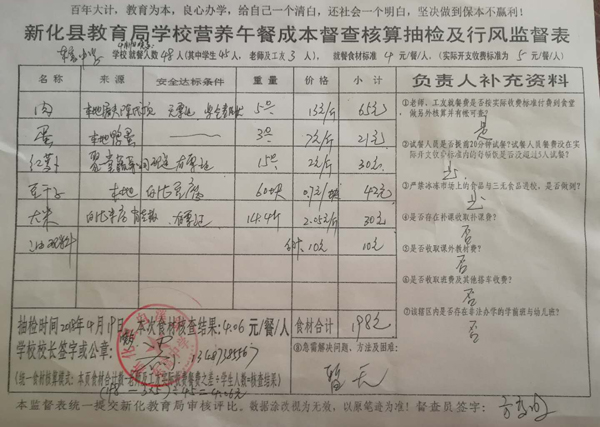 百年大计，教育为本，良心办学，给自己一个清白，还社会一个明白，坚决做到保本不赢利！
新化县教育局学校营养午餐成本督查核算抽检及行风监督表
学校就餐人数48人(其中学生45人，老师及工友3人)，就餐食材标准4元/餐/人，(实际开支收费标准为5元/餐/人)
名称 来源 安全达标条件 重量 价格 小计 负责人补充资料
肉 5斤 13元/斤 65元
蛋 本地鸭蛋 3斤 7元/斤 21元
红萝卜 15斤 2元/斤 30元
豆干子 本地 60块 0.7元/块 42元
大米 14.4斤 2.05元/斤 30元
10元 10元
①老师、工友就餐费是否按实际收费标准付费到食堂做另外核算并有帐可查?
是
②试餐人员是否提前20分钟试餐?试餐人员餐费没在实际开支收费标准内的每顿饭是否没超过3人试餐?
是
③严禁冰冻市场上的食品与三无食品进校，是否做到?
是
④是否存在补课收取补课费?
否
⑤是否收取课外教材费?
否
⑥是否收取班费及其他搭车收费?
否
⑦该辖区内是否存在非法办学的学前班与幼儿班?
否
抽检时间2018年4月19日 本次食材核查结果:4.06元/餐/人 食材合计 198元
学校校长签字或公章:
⑧急需解决问题、方法及困难:
暂无
(198-3×5)÷45=4.06元
本监督表统一提交新化教育局审核评比，数据涂改视为无效，以原笔迹为准! 督查员签字: